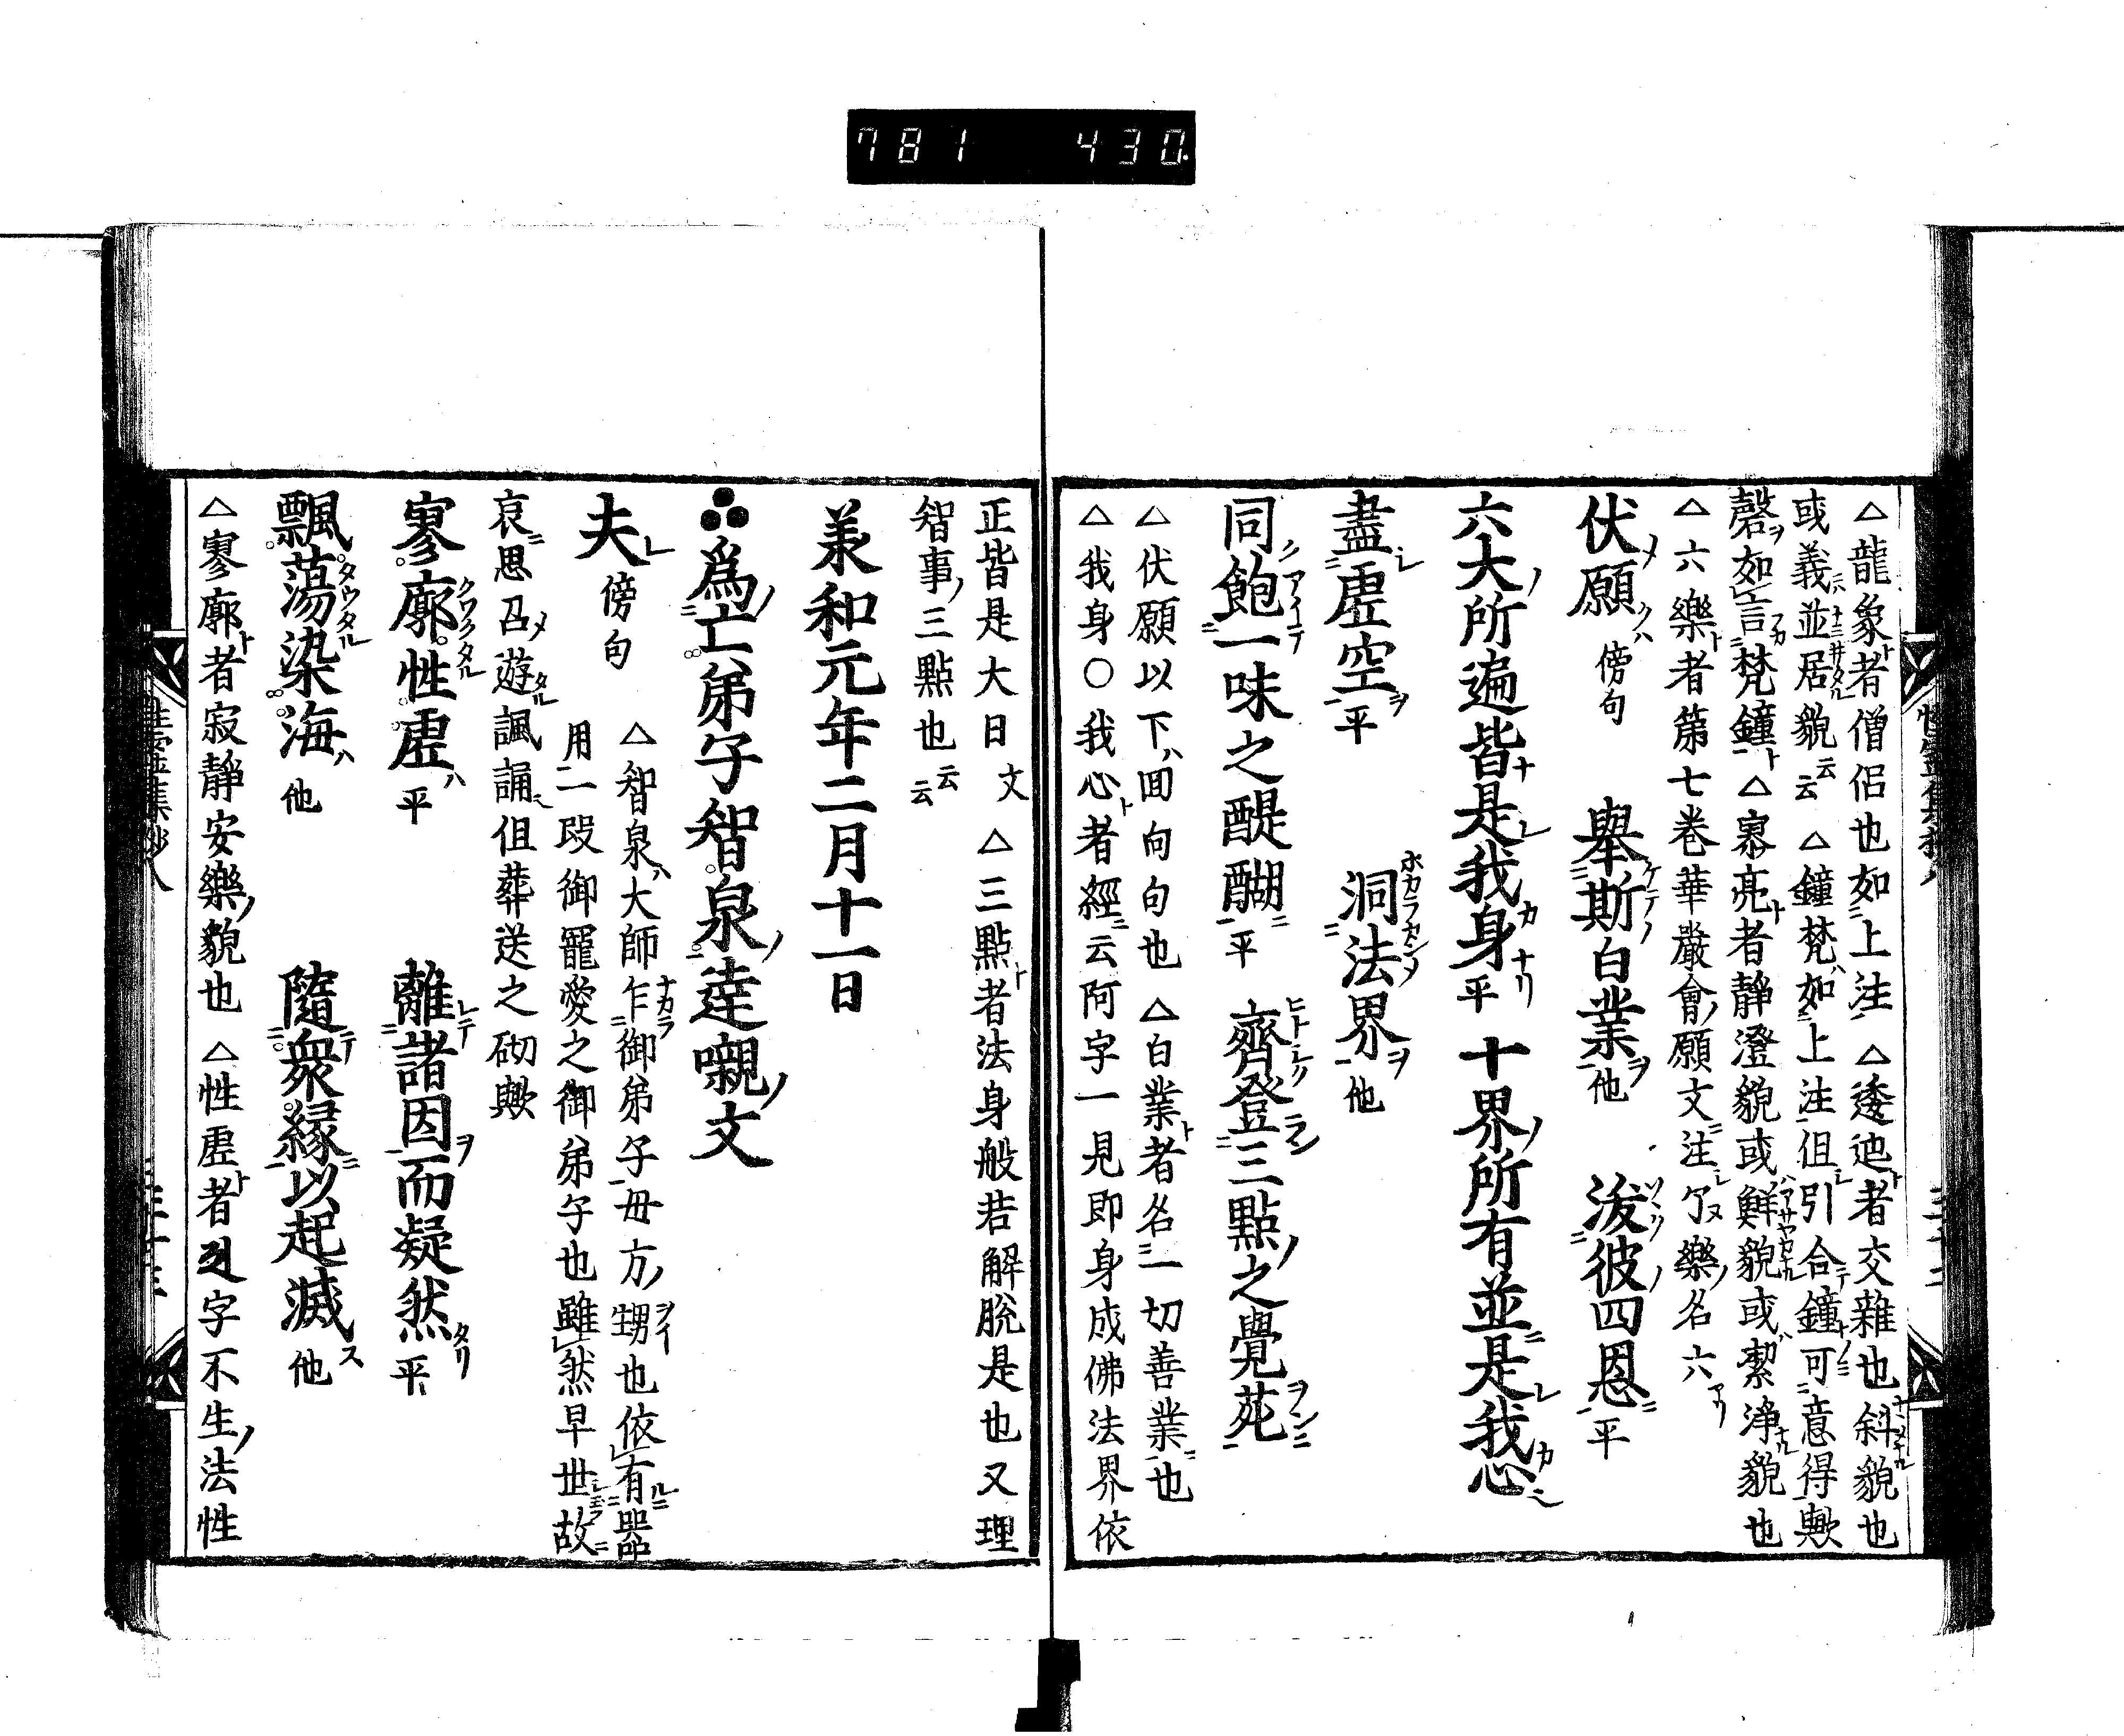 781 430
△龍象者僧侶也如上注△逶迤者交雜也斜貌也
或義並居貌云云△鐘梵如上注但引合鐘可意得歟
磬如言梵鐘△寥亮者靜澄貌或鮮貌或潔淨貌也
△六樂者第七巻華嚴會願文注名六
伏願 傍句 擧斯白業他 濟彼四恩平
六大所遍皆是我身平 十界所有並是我心
盡虚空平 洞法界他
同飽一味之醍醐平 齊登三點之覺苑
△伏願以下回向句也△白業者名一切善業也
△我身○我心者經云阿字一見即身成佛法界依
正皆是大日文△三點者法身般若解脱是也又理
智事三點也云云
兼和元年二月十一日
爲亡弟子智泉達嚫文
夫 傍句 △智泉大師乍御弟子母方甥也依有器
用二段御寵愛之御弟子也雖然早世故
哀思召遊諷誦但葬送之砌歟
寥廓性虚平 離諸因而凝然平
飄蕩染海他 隨衆緣以起滅他
△寥廓者寂靜安樂貌也△性虚者字不生法性